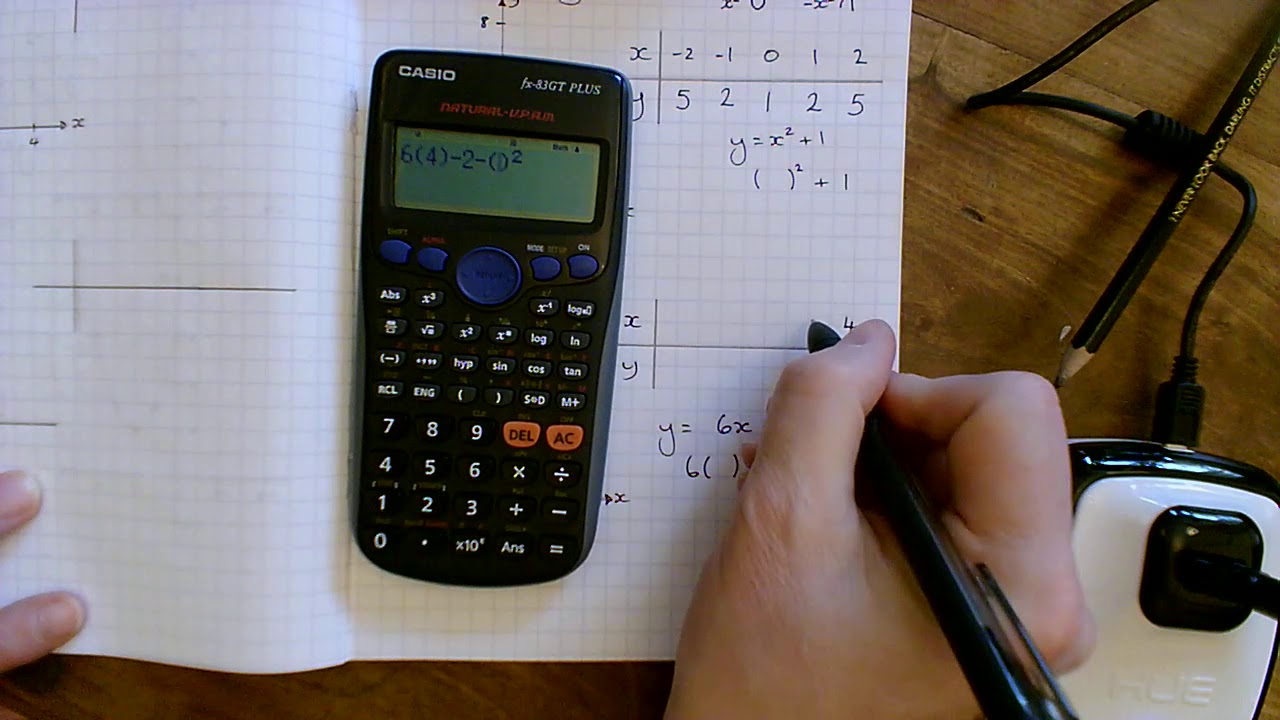 8
x -2 -1 0 1 2
y 5 2 1 2 5
y = x² + 1
( )² + 1
x
4
x 4
y
y = 6x
6( )
x
CASIO
fx-83GT PLUS
NATURAL-V.P.A.M.
Math ▲
6(4)-2-()²
SHIFT ALPHA MODE SETUP ON
Abs x³ x⁻¹ log▪□
√▪ x² x▪ log ln
(−) °'" hyp sin cos tan
RCL ENG ( ) S⇔D M+
7 8 9 DEL AC
4 5 6 × ÷
1 2 3 + −
0 • ×10ˣ Ans =
I NEVER LOOK BACK, DARLING. IT DISTRACTS
HUE